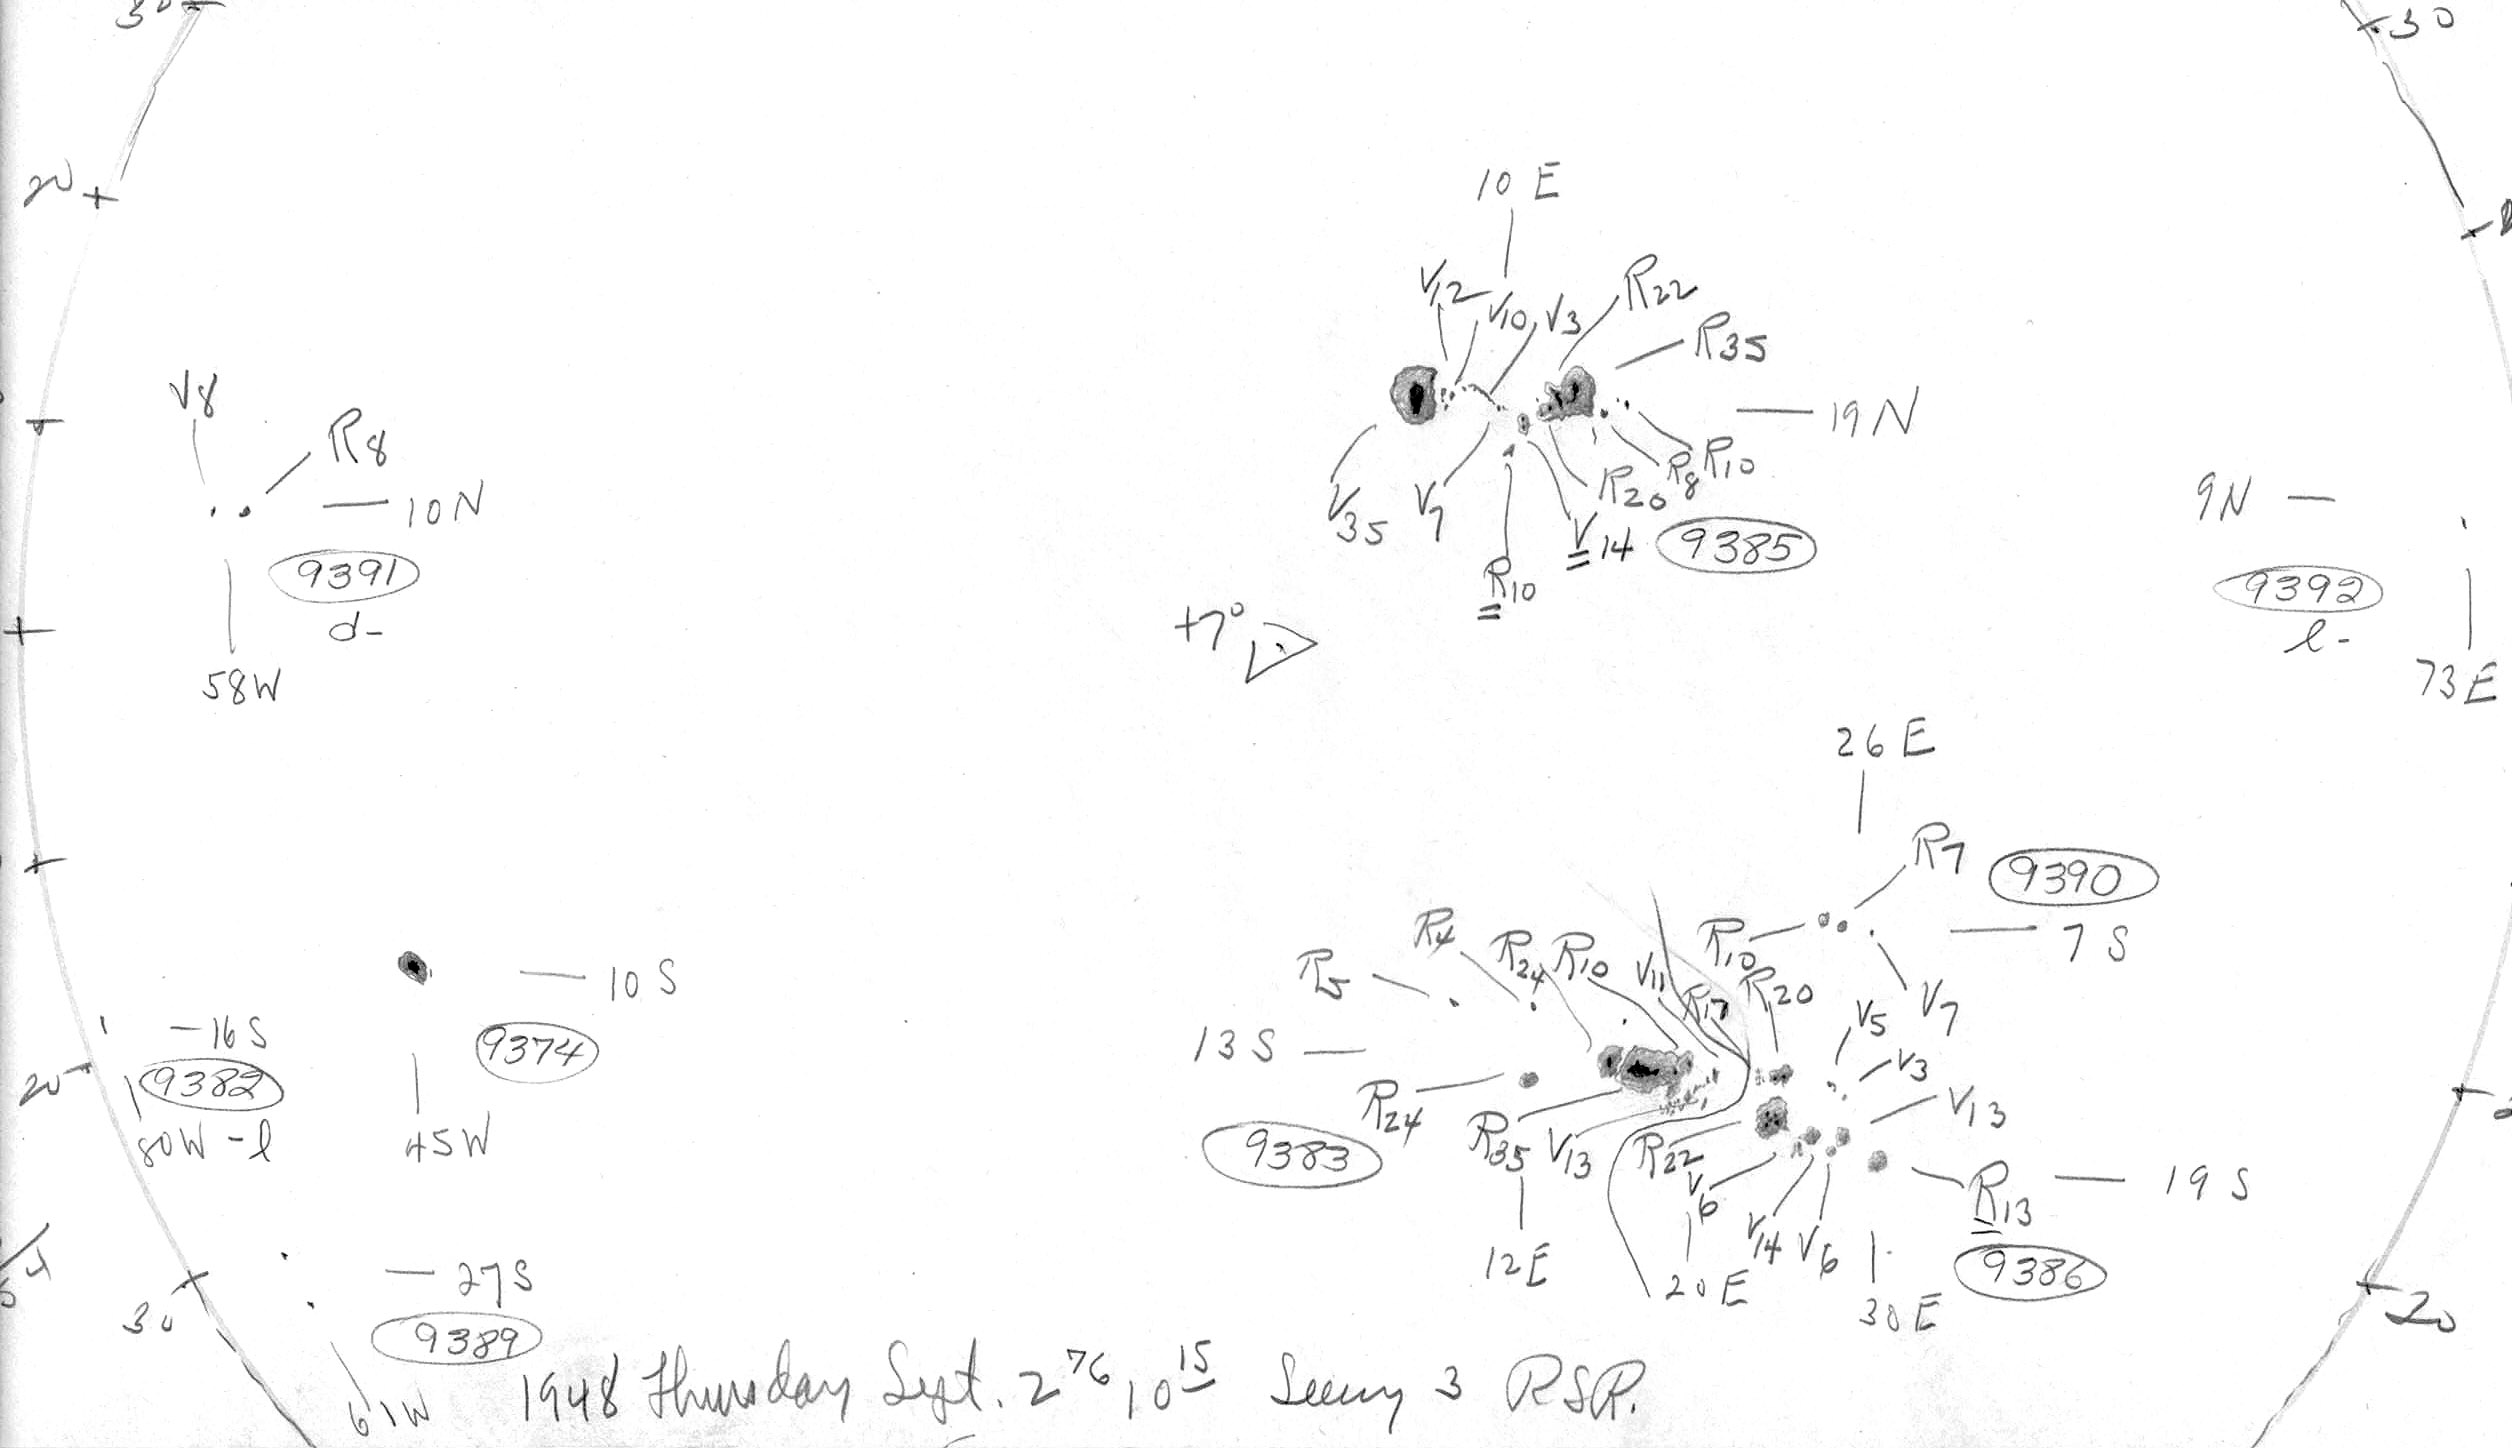 30
30
20
10 E
V12 V10 V3 R22
R35
V8
R8
19 N
10 N
V35 V7 R20 R8 R10
9N
V14 9385
9391
R10
9392
d-
+7°
l-
58W
73E
26 E
R7
9390
R4 R24 R10 V11 R10
7 S
R5
R17 R20
10 S
V5 V7
16 S
9374
13 S
20 9382
V3
R24
V13
80W -l
45W
R35 V13 R22
9383
V6
R13
19 S
V14 V6
27 S
12E
20 E
9386
30
30 E
20
9389
61W
1948 Thursday Sept. 2 76 10 15 Seeing 3 RSR.